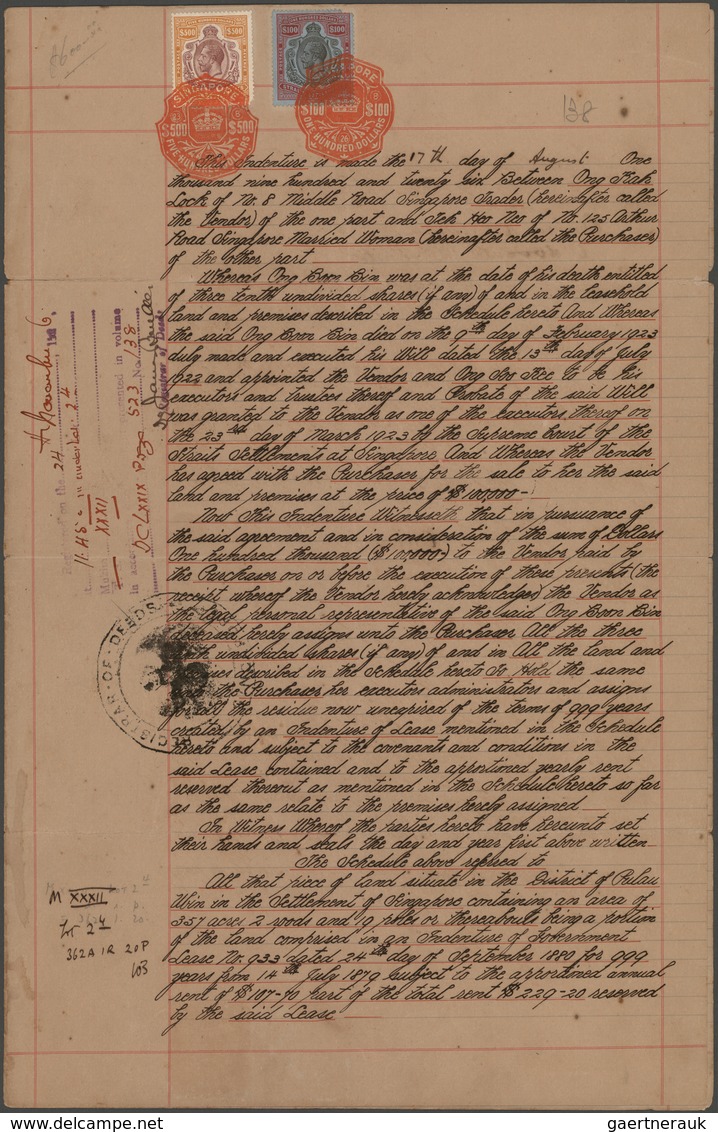 $500 $500
$100 $100
SINGAPORE
$500 $500
FIVE HUNDRED DOLLARS
SINGAPORE
$100 $100
ONE HUNDRED DOLLARS
138
This Indenture is made the 17th day of August One
thousand nine hundred and twenty six Between Ong Kah
Lock of No. 8 Middle Road Singapore Trader (hereinafter called
the Vendor) of the one part and Teh Hoo Neo of No. 125 Arthur
Road Singapore Married Woman (hereinafter called the Purchaser)
of the other part
Whereas Ong Boon Bin was at the date of his death entitled
of three tenth undivided shares (if any) of and in the leasehold
land and premises described in the Schedule hereto And Whereas
the said Ong Boon Bin died on the 9th day of February 1923
duly made and executed his Will dated the 13th day of July
1922 and appointed the Vendor and Ong to be his
executors and trustees thereof and Probate of the said Will
was granted to the Vendor as one of the executors thereof on
the 23rd day of March 1923 by the Supreme Court of the
Strait Settlements at Singapore And Whereas the Vendor
has agreed with the Purchaser for the sale to her the said
land and premises at the price of $100,000-
Now this Indenture Witnesseth that in pursuance of
the said agreement and in consideration of the sum of Dollars
One hundred thousand ($100,000-) to the Vendor paid by
the Purchaser on or before the execution of these presents (the
receipt whereof the Vendor hereby acknowledges) the Vendor as
the legal personal representative of the said Ong Boon Bin
deceased hereby assigns unto the Purchaser All the three
undivided shares (if any) of and in All the land and
described in the Schedule hereto To Hold the same
the Purchaser her executors administrators and assigns
for all the residue now unexpired of the terms of 999 years
created by an Indenture of Lease mentioned in the Schedule
hereto and subject to the covenants and conditions in the
said Lease contained and to the apportioned yearly rent
reserved thereout as mentioned in the Schedule hereto so far
as the same relate to the premises hereby assigned
In Witness Whereof the parties hereto have hereunto set
their hands and seals the day and year first above written
The Schedule above referred to
All that piece of land situate in the District of Pulau
Ubin in the Settlement of Singapore containing an area of
357 acres 2 roods and 19 poles or thereabouts being a portion
of the land comprised in an Indenture of Government
Lease No. 933 dated 24th day of September 1880 for 999
years from 14th July 1879 subject to the apportioned annual
rent of $107-70 part of the total rent $229-20 reserved
by the said Lease
on the 24
XXXII
DCLXXIX Page 523 No. 138
presented in volume
Registrar of Deeds
REGISTRAR OF DEEDS
M XXXII
Lot 24
362A 1R 20P
103
gaertnerauk